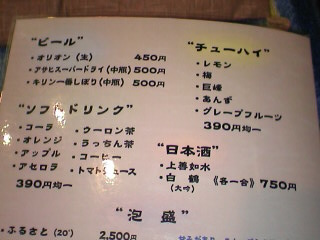 “ビール”
・オリオン（生） 450円
・アサヒスーパードライ（中瓶）500円
・キリン一番しぼり（中瓶） 500円
“ソフトドリンク”
・コーラ ・ウーロン茶
・オレンジ ・うっちん茶
・アップル ・コーヒー
・アセロラ ・トマトジュース
390円均一
“チューハイ”
・レモン
・梅
・巨峰
・あんず
・グレープフルーツ
390円均一
“日本酒”
・上善如水
・白鶴 《各一合》750円
（大吟）
“泡盛”
・ふるさと（20°） 2,500円